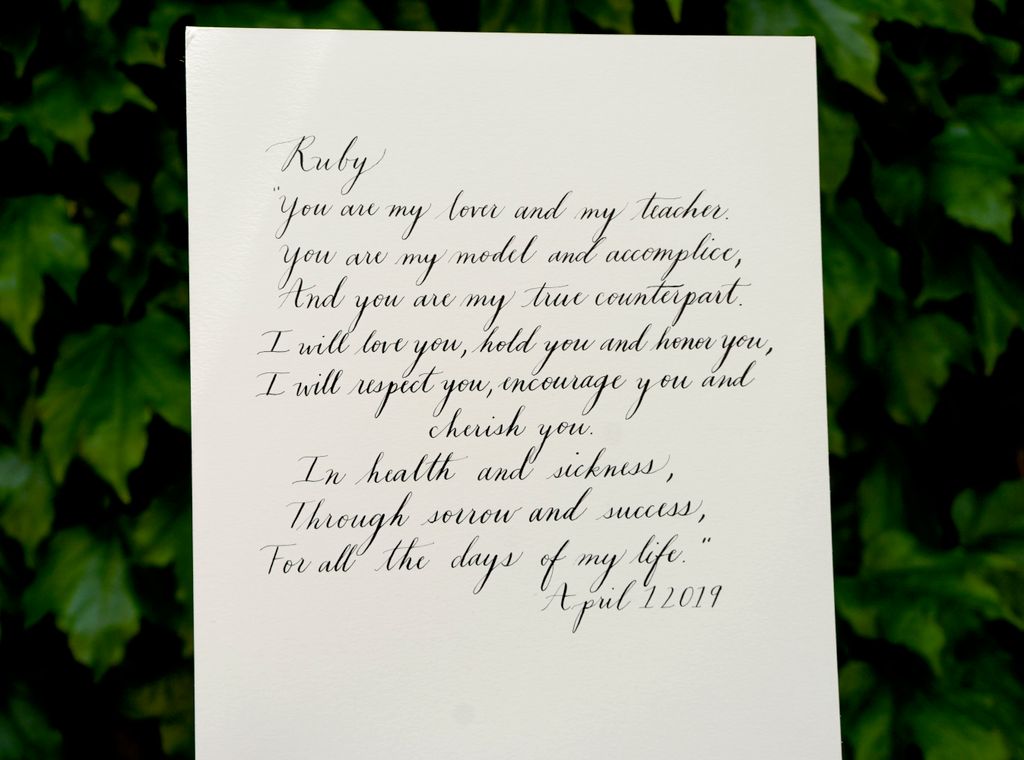 Ruby
"You are my lover and my teacher.
You are my model and accomplice,
And you are my true counterpart.
I will love you, hold you and honor you,
I will respect you, encourage you and
cherish you.
In health and sickness,
Through sorrow and success,
For all the days of my life."
April 1 2019